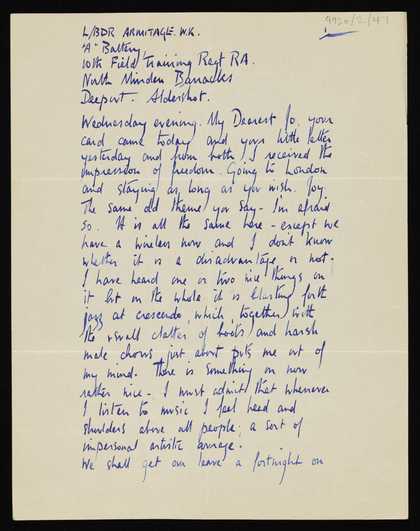 9920/2/47
L/BDR ARMITAGE. W.K.
"A" Battery,
10th Field Training Regt RA.
North Minden Barracks
Deepcut. Aldershot.
Wednesday evening. My Dearest Jo, your
card came today and your little letter
yesterday and from both I received the
impression of freedom. Going to London
and staying as long as you wish. Joy.
The same old theme you say - I'm afraid
so. It is all the same here - except we
have a wireless now and I don't know
whether it is a disadvantage or not.
I have heard one or two nice things on
it but on the whole it is blasting forth
jazz at crescendo, which, together with
the usual clatter of boots and harsh
male chorus just about puts me out of
my mind. There is something on now
rather nice - I must admit that whenever
I listen to music I feel head and
shoulders above all people; a sort of
impersonal artistic
We shall get our leave a fortnight on